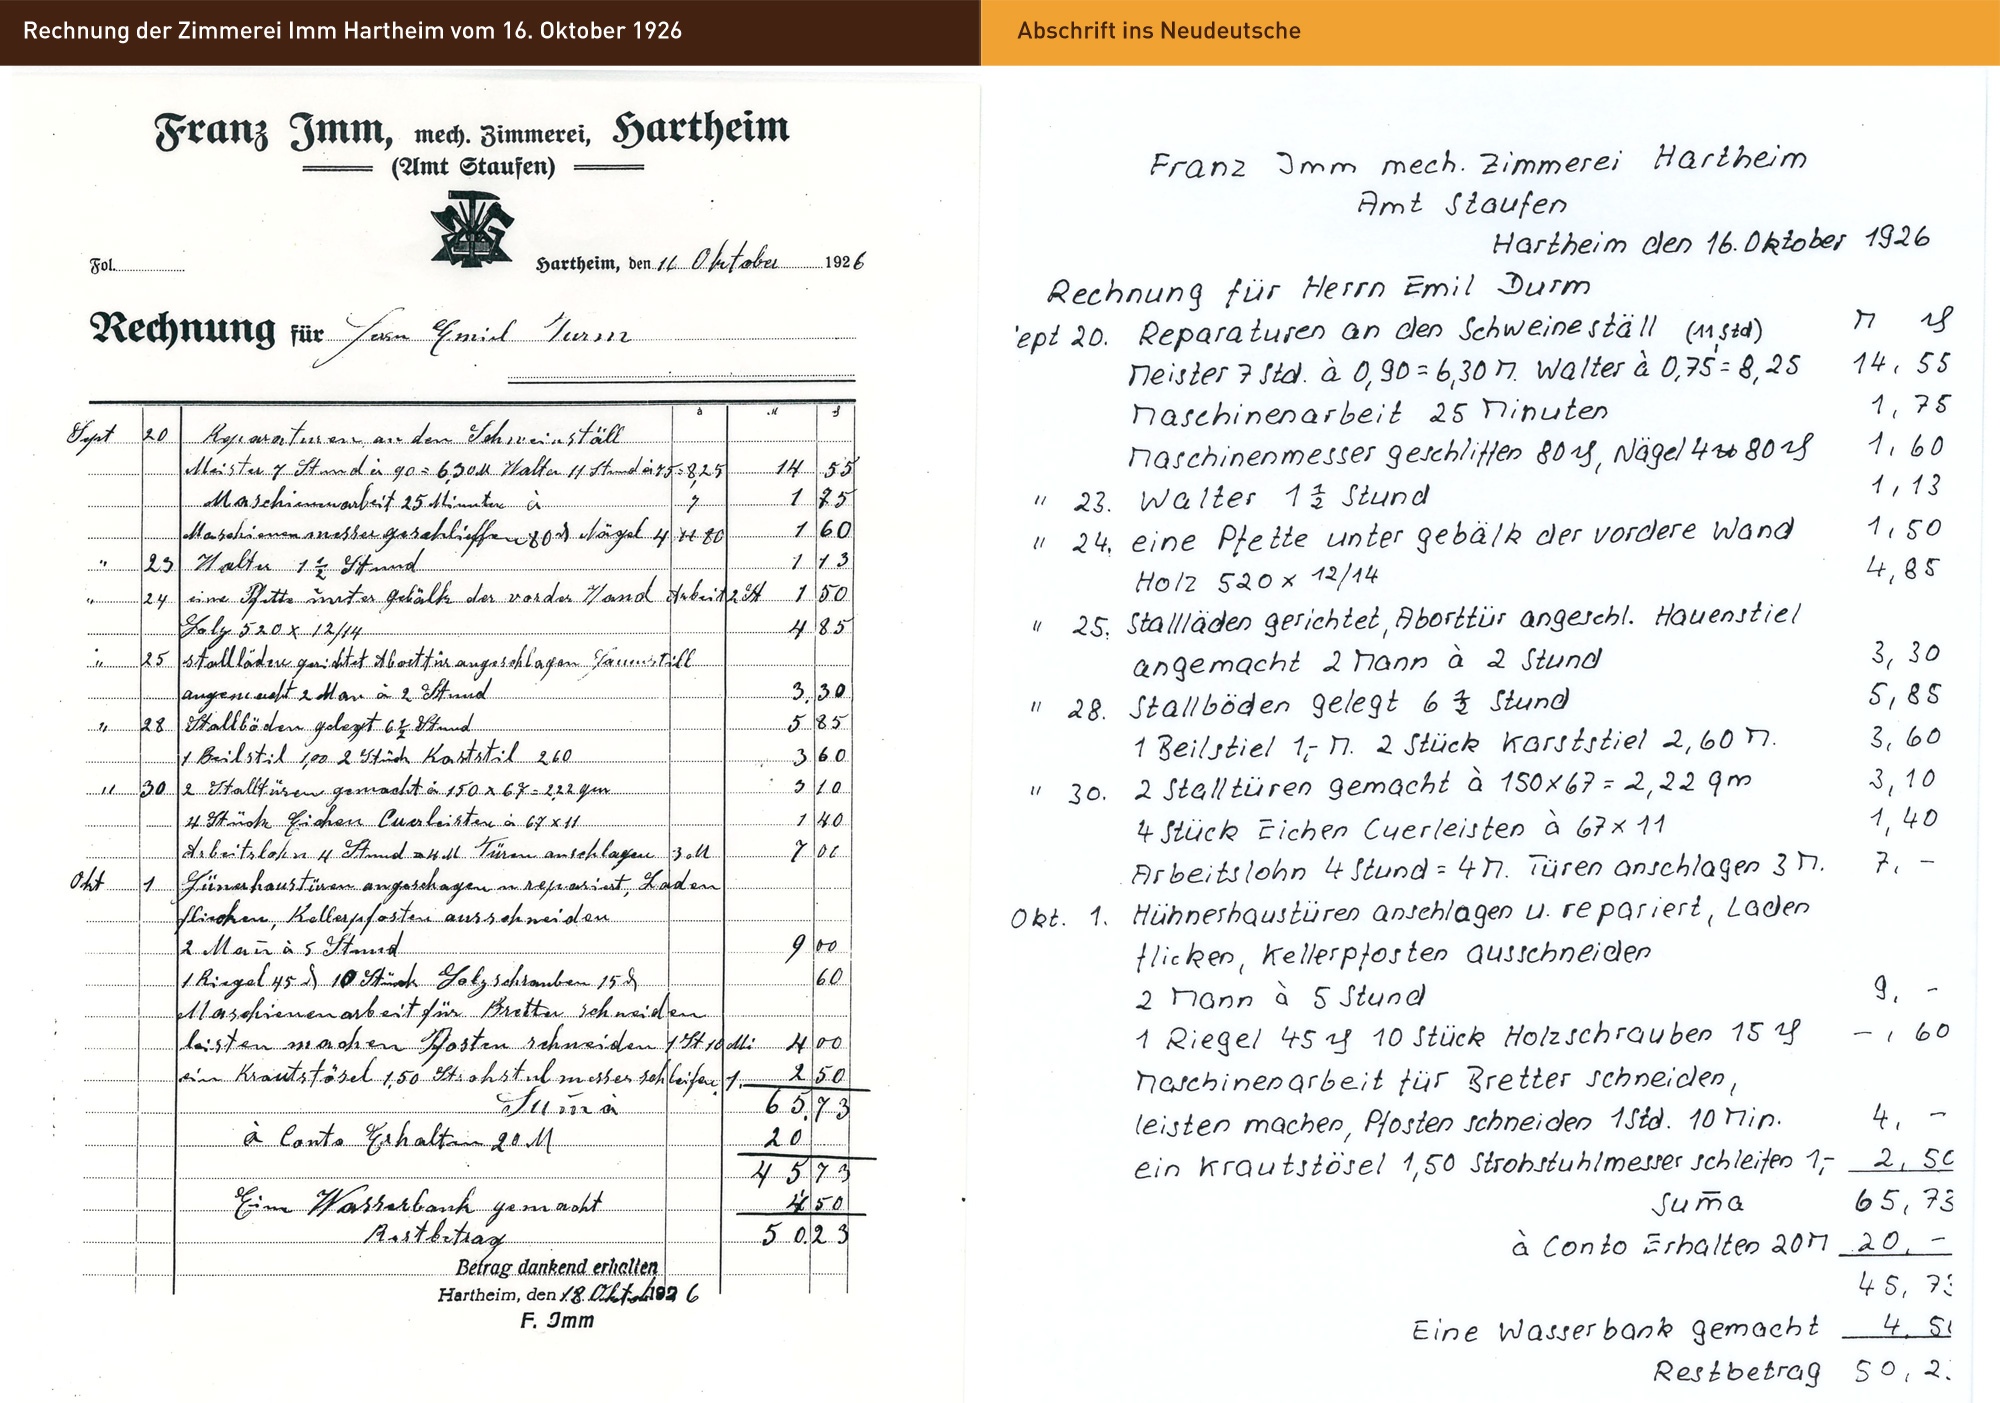 Rechnung der Zimmerei Imm Hartheim vom 16. Oktober 1926
Franz Imm, mech. Zimmerei, Hartheim
(Amt Staufen)
Fol.
Hartheim, den 16 Oktober 1926
Rechnung für Herrn Emiel Durm
M ₰
Sept 20 Reparaturen an den Schweinställ
Meister 7 Stund à 90 = 6,30 M Walter 11 Stund à 75 = 8,25 14 55
Maschienenarbeit 25 Minuten à 7 1 75
Maschienenmesser geschlieffen 80 ₰ Nägel 4 ℔ 80 1 60
" 23 Walter 1 1/2 Stund 1 13
" 24 eine Pfette unter Gebälk der vorder Wand Arbeit 2 St 1 50
Holz 520 x 12/14 4 85
" 25 Stallläden gerichtet Aborttür angeschlagen
angemacht 2 Man à 2 Stund 3,30
" 28 Stallböden gelegt 6 1/2 Stund 5 85
1 Beilstil 1,00 2 Stück Karststil 260 3 60
" 30 2 Stalltüren gemacht à 150 x 67 = 2,22 qm 3 10
4 Stück Eichen Cuerleisten à 67 x 11 1 40
Arbeitslohn 4 Stund = 4 M Türen anschlagen 3 M 7 00
Okt 1 Hünerhaustüren angeschagen u repariert, Laden
flicken, Kellerpfosten ausschneiden
2 Man̄ à 5 Stund 9 00
1 Riegel 45 ₰ 10 Stück Holzschrauben 15 ₰ 60
Maschienenarbeit für Bretter schneiden
leisten machen Pfosten schneiden 1 St 10 Mi 4 00
ein Krautstösel 1,50 Strohstulmesser schleifen 1. 2 50
Sum̄a 65,73
à Conto Erhalten 20 M 20
45 73
Eine Wasserbank gemacht 4 50
Restbetrag 50.23
Betrag dankend erhalten
Hartheim, den 18. Oktob 1926
F. Imm
Abschrift ins Neudeutsche
Franz Imm mech. Zimmerei Hartheim
Amt Staufen
Hartheim den 16. Oktober 1926
Rechnung für Herrn Emil Durm
M ₰
'ept 20. Reparaturen an den Schweineställ (11 Std)
Meister 7 Std. à 0,90 = 6,30 M. Walter à 0,75 = 8,25 14,55
Maschinenarbeit 25 Minuten 1,75
Maschinenmesser geschliffen 80 ₰, Nägel 4 ℔ 80 ₰ 1,60
" 23. Walter 1 1/2 Stund 1,13
" 24. eine Pfette unter gebälk der vordere Wand 1,50
Holz 520 x 12/14 4,85
" 25. Stallläden gerichtet, Aborttür angeschl. Hauenstiel
angemacht 2 Mann à 2 Stund 3,30
" 28. Stallböden gelegt 6 1/2 Stund 5,85
1 Beilstiel 1,- M. 2 Stück Karststiel 2,60 M. 3,60
" 30. 2 Stalltüren gemacht à 150 x 67 = 2,22 qm 3,10
4 Stück Eichen Cuerleisten à 67 x 11 1,40
Arbeitslohn 4 Stund = 4 M. Türen anschlagen 3 M. 7,-
Okt. 1. Hühnerhaustüren anschlagen u. repariert, Laden
flicken, Kellerpfosten ausschneiden
2 Mann à 5 Stund 9,-
1 Riegel 45 ₰ 10 Stück Holzschrauben 15 ₰ -,60
Maschinenarbeit für Bretter schneiden,
leisten machen, Pfosten schneiden 1 Std. 10 Min. 4,-
ein Krautstösel 1,50 Strohstuhlmesser schleifen 1,- 2,50
Sum̄a 65,73
à Conto Erhalten 20 M 20,-
45,73
Eine Wasserbank gemacht 4,50
Restbetrag 50,2